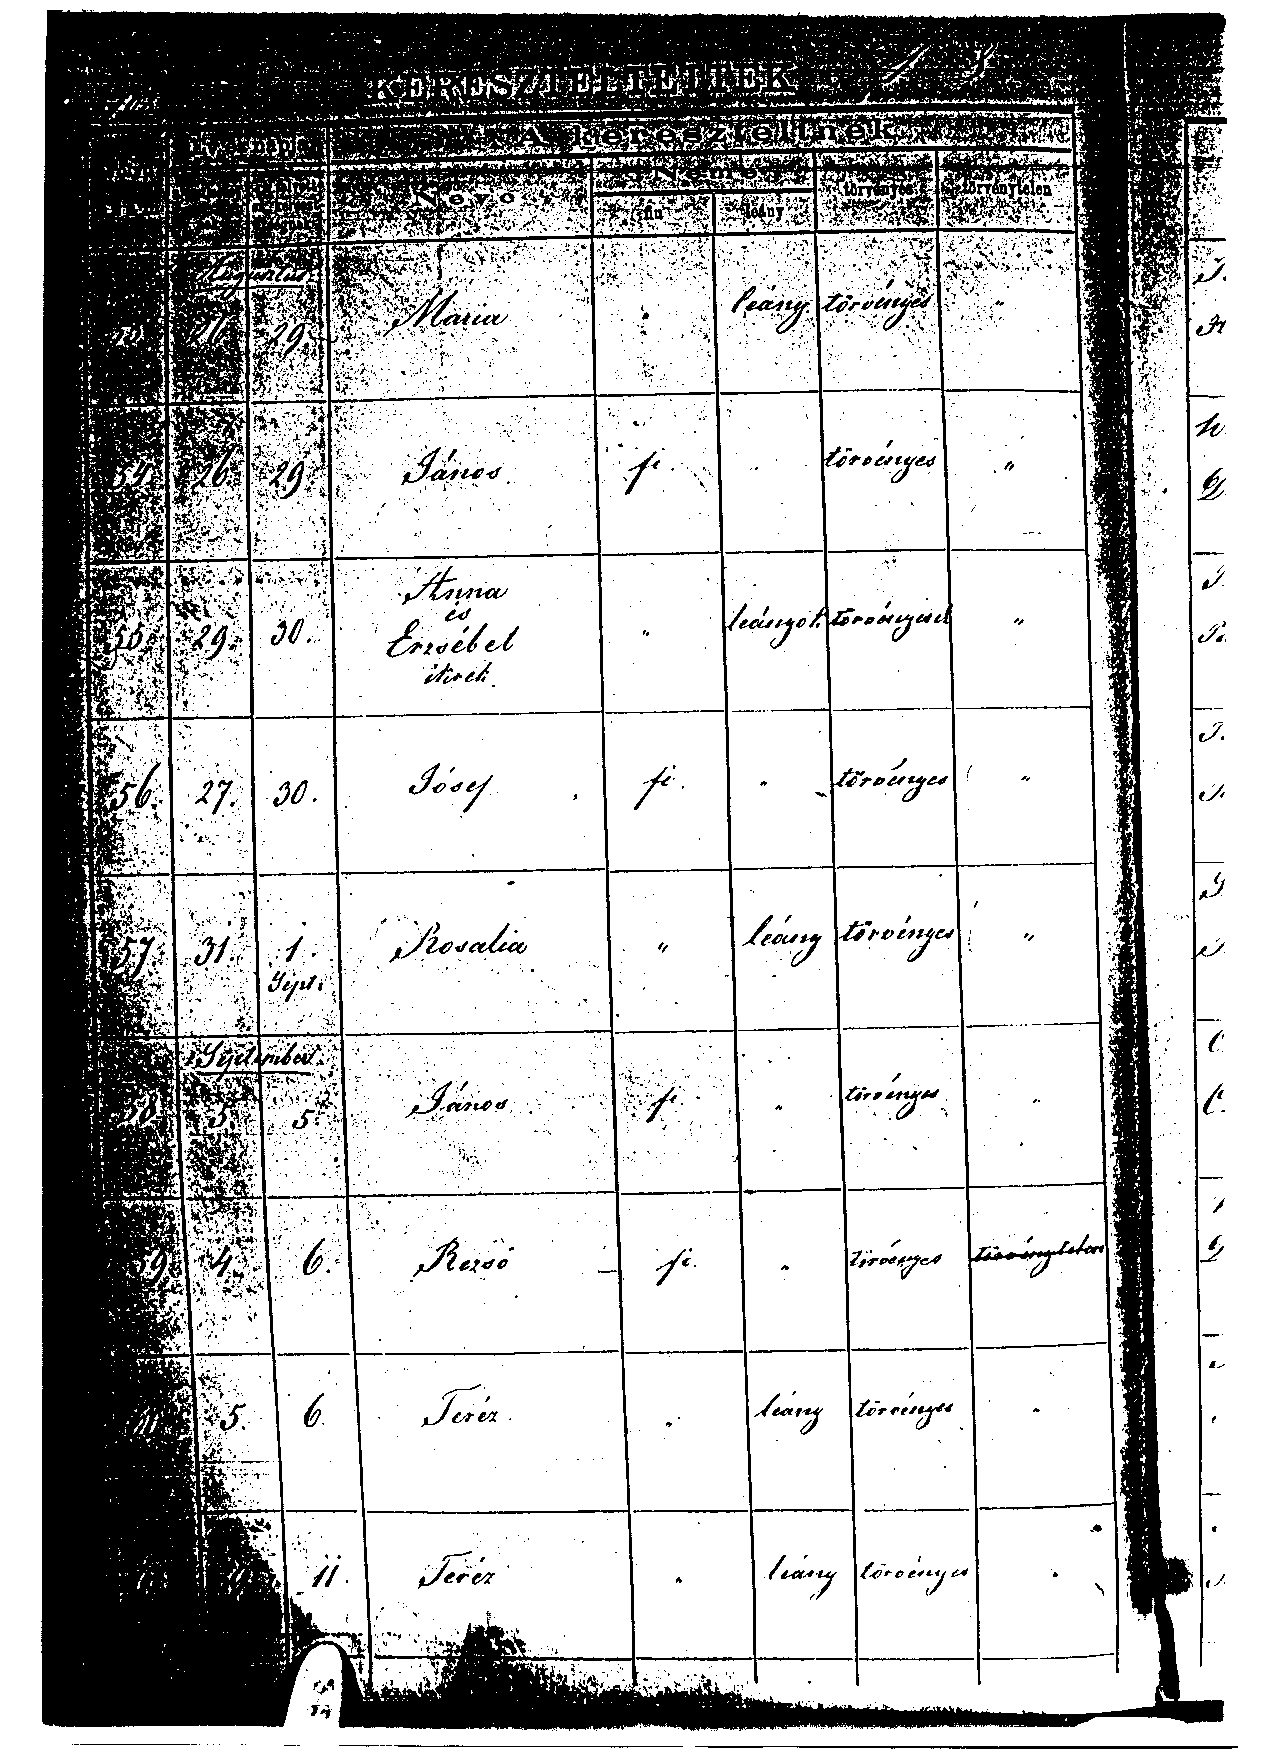 KERESZTELTETTEK
A kereszteltnek
Neve
fiu leány törvényes törvénytelen
Augustus
26 29. Maria leány törvényes "
54. 26. 29. János fi. törvényes "
55. 29. 30. Anna
és
Erzsébet
ikrek
" leányok törvényesek "
56. 27. 30. Jósef fi. " törvényes "
57. 31. 1.
Sept.
Rosalia " leány törvényes "
September.
58 3. 5. János fi " törvényes "
59. 4. 6. Rezső fi. " törvényes törvénytelen
5. 6. Teréz " leány törvényes "
11. Teréz " leány törvényes "